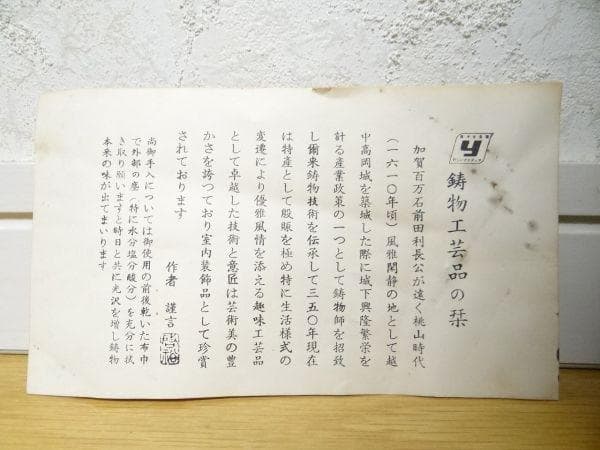 鋳物工芸品の栞
加賀百万石前田利長公が遠く桃山時代
(一六一〇年頃)風雅閑静の地として越
中高岡城を築城した際に城下興隆繁栄を
計る産業政策の一つとして鋳物師を招致
し爾来鋳物技術を伝承して三五〇年現在
は特産として殷賑を極め特に生活様式の
変遷により優雅風情を添える趣味工芸品
として卓越した技術と意匠は芸術美の豊
かさを誇つており室内装飾品として珍賞
されております
作者 謹言
尚御手入については御使用の前後乾いた布巾
で外部の塵(特に水分塩分酸分)を充分に拭
き取り願いますと時日と共に光沢を増し鋳物
本来の味が出てまいります